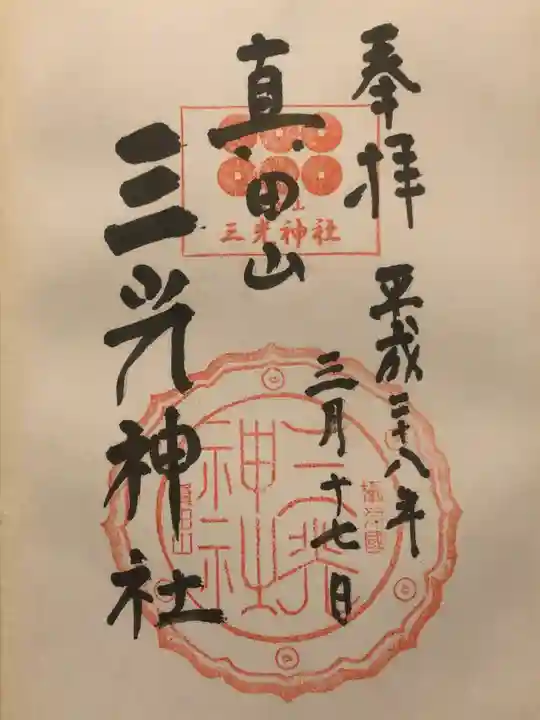 奉拝
平成二十八年
三月十七日
真田山
三光神社
三光神社
三光
神社